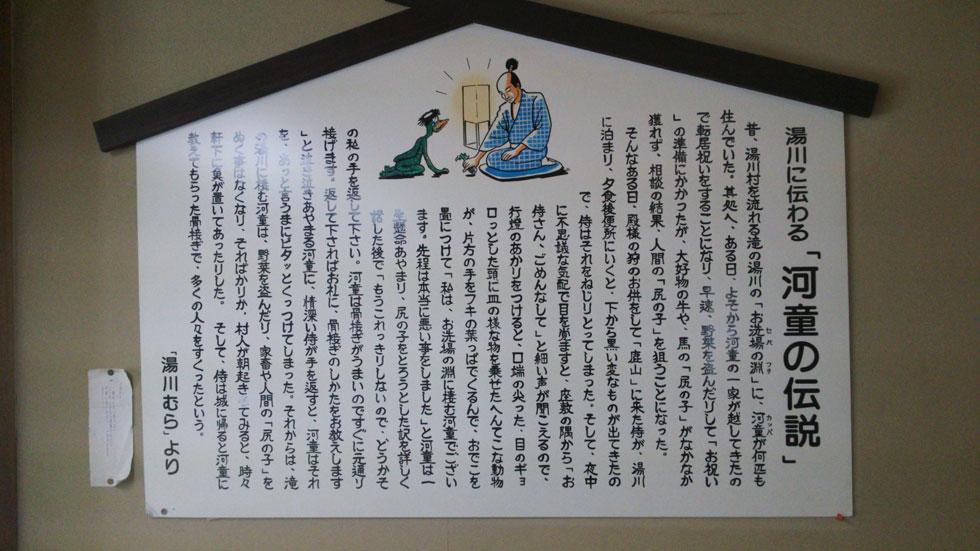 湯川に伝わる「河童の伝説」
昔、湯川村を流れる滝の湯川の「お洗場の淵」に、河童が何匹も
住んでいた。其処へ、ある日、よそから河童の一家が越してきたの
で転居祝いをすることになり、早速、野菜を盗んだりして「お祝い
」の準備にかかったが、大好物の牛や、馬の「尻の子」がなかなか
獲れず、相談の結果、人間の「尻の子」を狙うことになった。
そんなある日、殿様の狩のお供をして「鹿山」に来た侍が、湯川
に泊まり、夕食後便所にいくと、下から黒い変なものが出てきたの
で、侍はそれをねじりとってしまった。そして、夜中
に不思議な気配で目を覚ますと、座敷の隅から「お
侍さん、ごめんなして」と細い声が聞こえるので、
行燈のあかりをつけると、口端の尖った、目のギョ
ロっとした頭に皿の様な物を乗せたへんてこな動物
が、片方の手をフキの葉っぱでくるんで、おでこを
畳につけて「私は、お洗場の淵に棲む河童でござい
ます。先程は本当に悪い事をしました」と河童は一
生懸命あやまり、尻の子をとろうとした訳を詳しく
話した後で「もうこれっきりしないので、どうかそ
の私の手を返して下さい。河童は骨接ぎがうまいのですぐに元通り
接げます。返して下さればお礼に、骨接ぎのしかたをお教えします
」と泣き泣きあやまる河童に、情深い侍が手を返すと、河童はそれ
を、あっと言うまにピタッとくっつけてしまった。それからは、滝
の湯川に棲む河童は、野菜を盗んだり、家畜や人間の「尻の子」を
ぬく事はなくなり、そればかりか、村人が朝起きてみると、時々
軒下に魚が置いてあったりした。そして、侍は城に帰ると河童に
教えてもらった骨接ぎで、多くの人々をすくったという。
「湯川むら」より